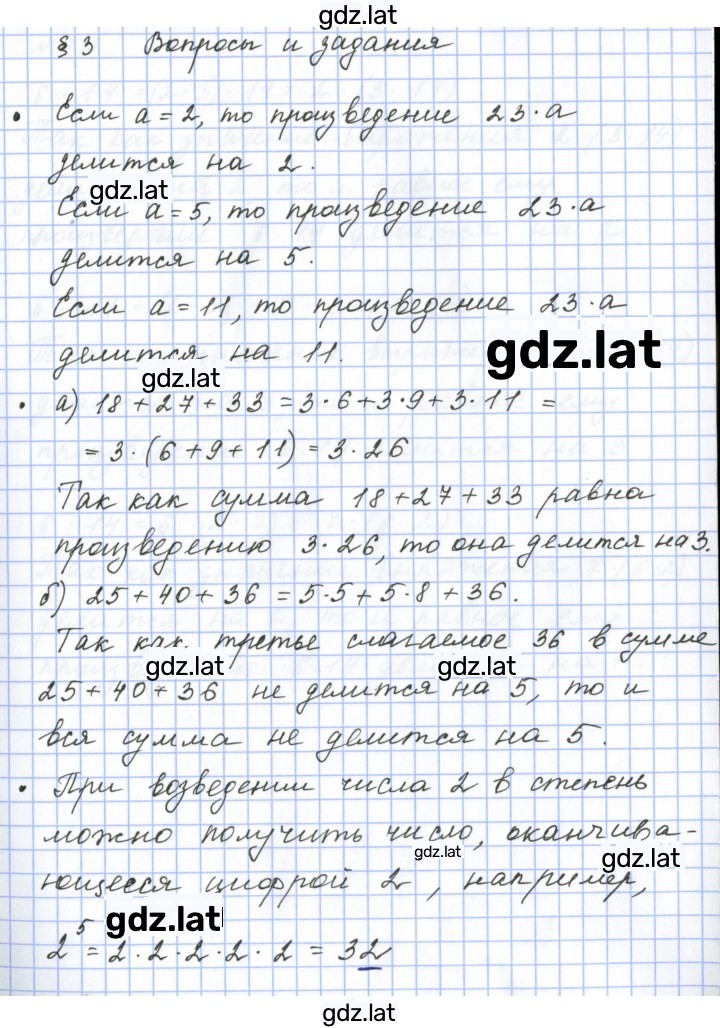 gdz.lat
§ 3 Вопросы и задания
• Если a = 2, то произведение 23·a
делится на 2.
gdz.lat
Если a = 5, то произведение 23·a
делится на 5.
Если a = 11, то произведение 23·a
gdz.lat
делится на 11.
gdz.lat
• а) 18 + 27 + 33 = 3·6 + 3·9 + 3·11 =
= 3·(6 + 9 + 11) = 3·26
Так как сумма 18 + 27 + 33 равна
произведению 3·26, то она делится на 3.
б) 25 + 40 + 36 = 5·5 + 5·8 + 36.
Так как третье слагаемое 36 в сумме
gdz.lat gdz.lat
25 + 40 + 36 не делится на 5, то и
вся сумма не делится на 5.
• При возведении числа 2 в степень
можно получить число, оканчива-
gdz.lat gdz.lat
ющееся цифрой 2, например,
gdz.lat
2⁵ = 2·2·2·2·2 = 32
gdz.lat